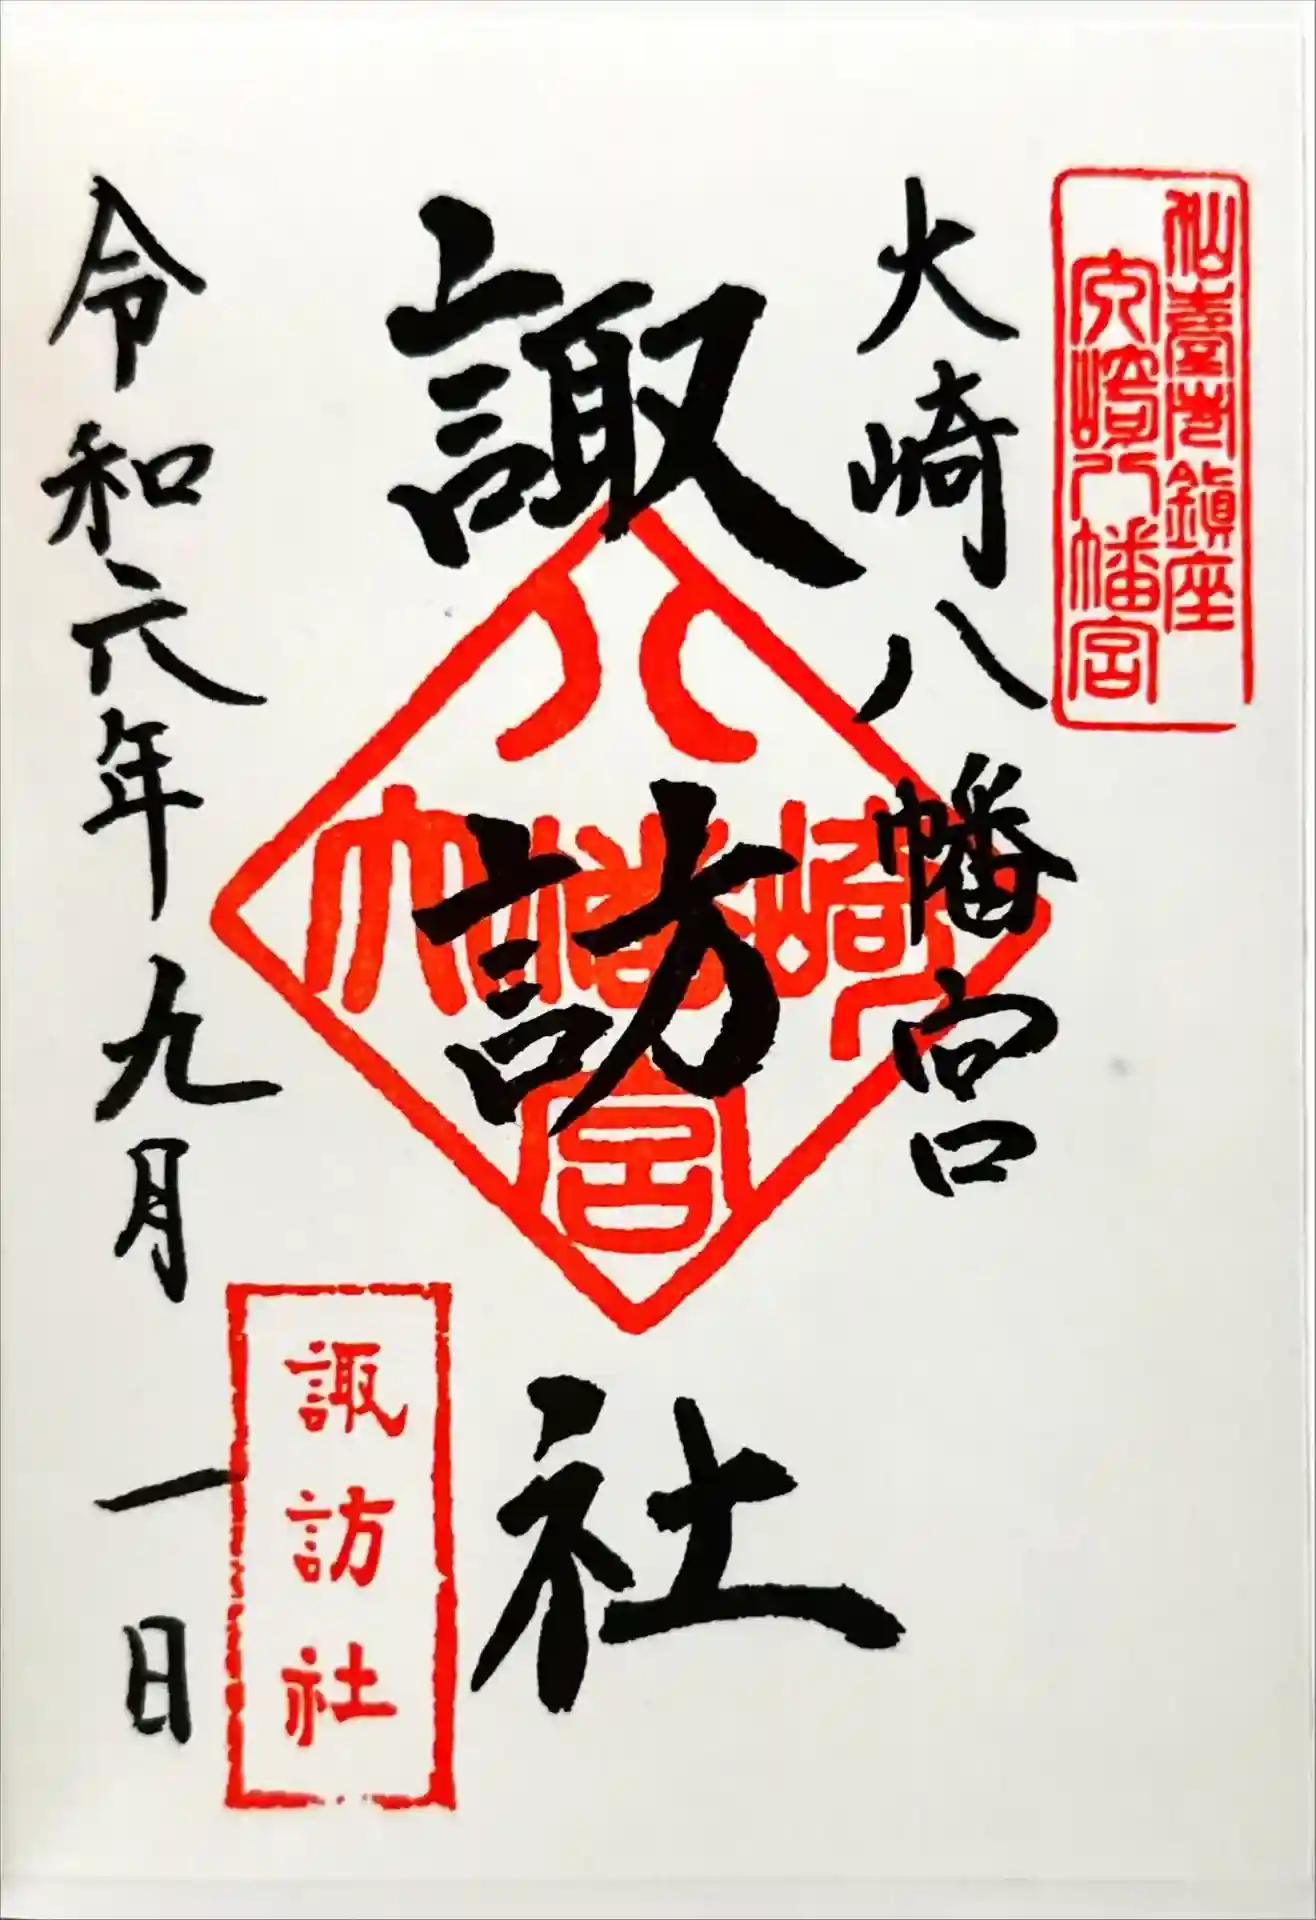 仙臺總鎮座
大崎八幡宮
大崎八幡宮
諏訪社
八
大幡崎
宮
諏訪社
令和六年九月一日